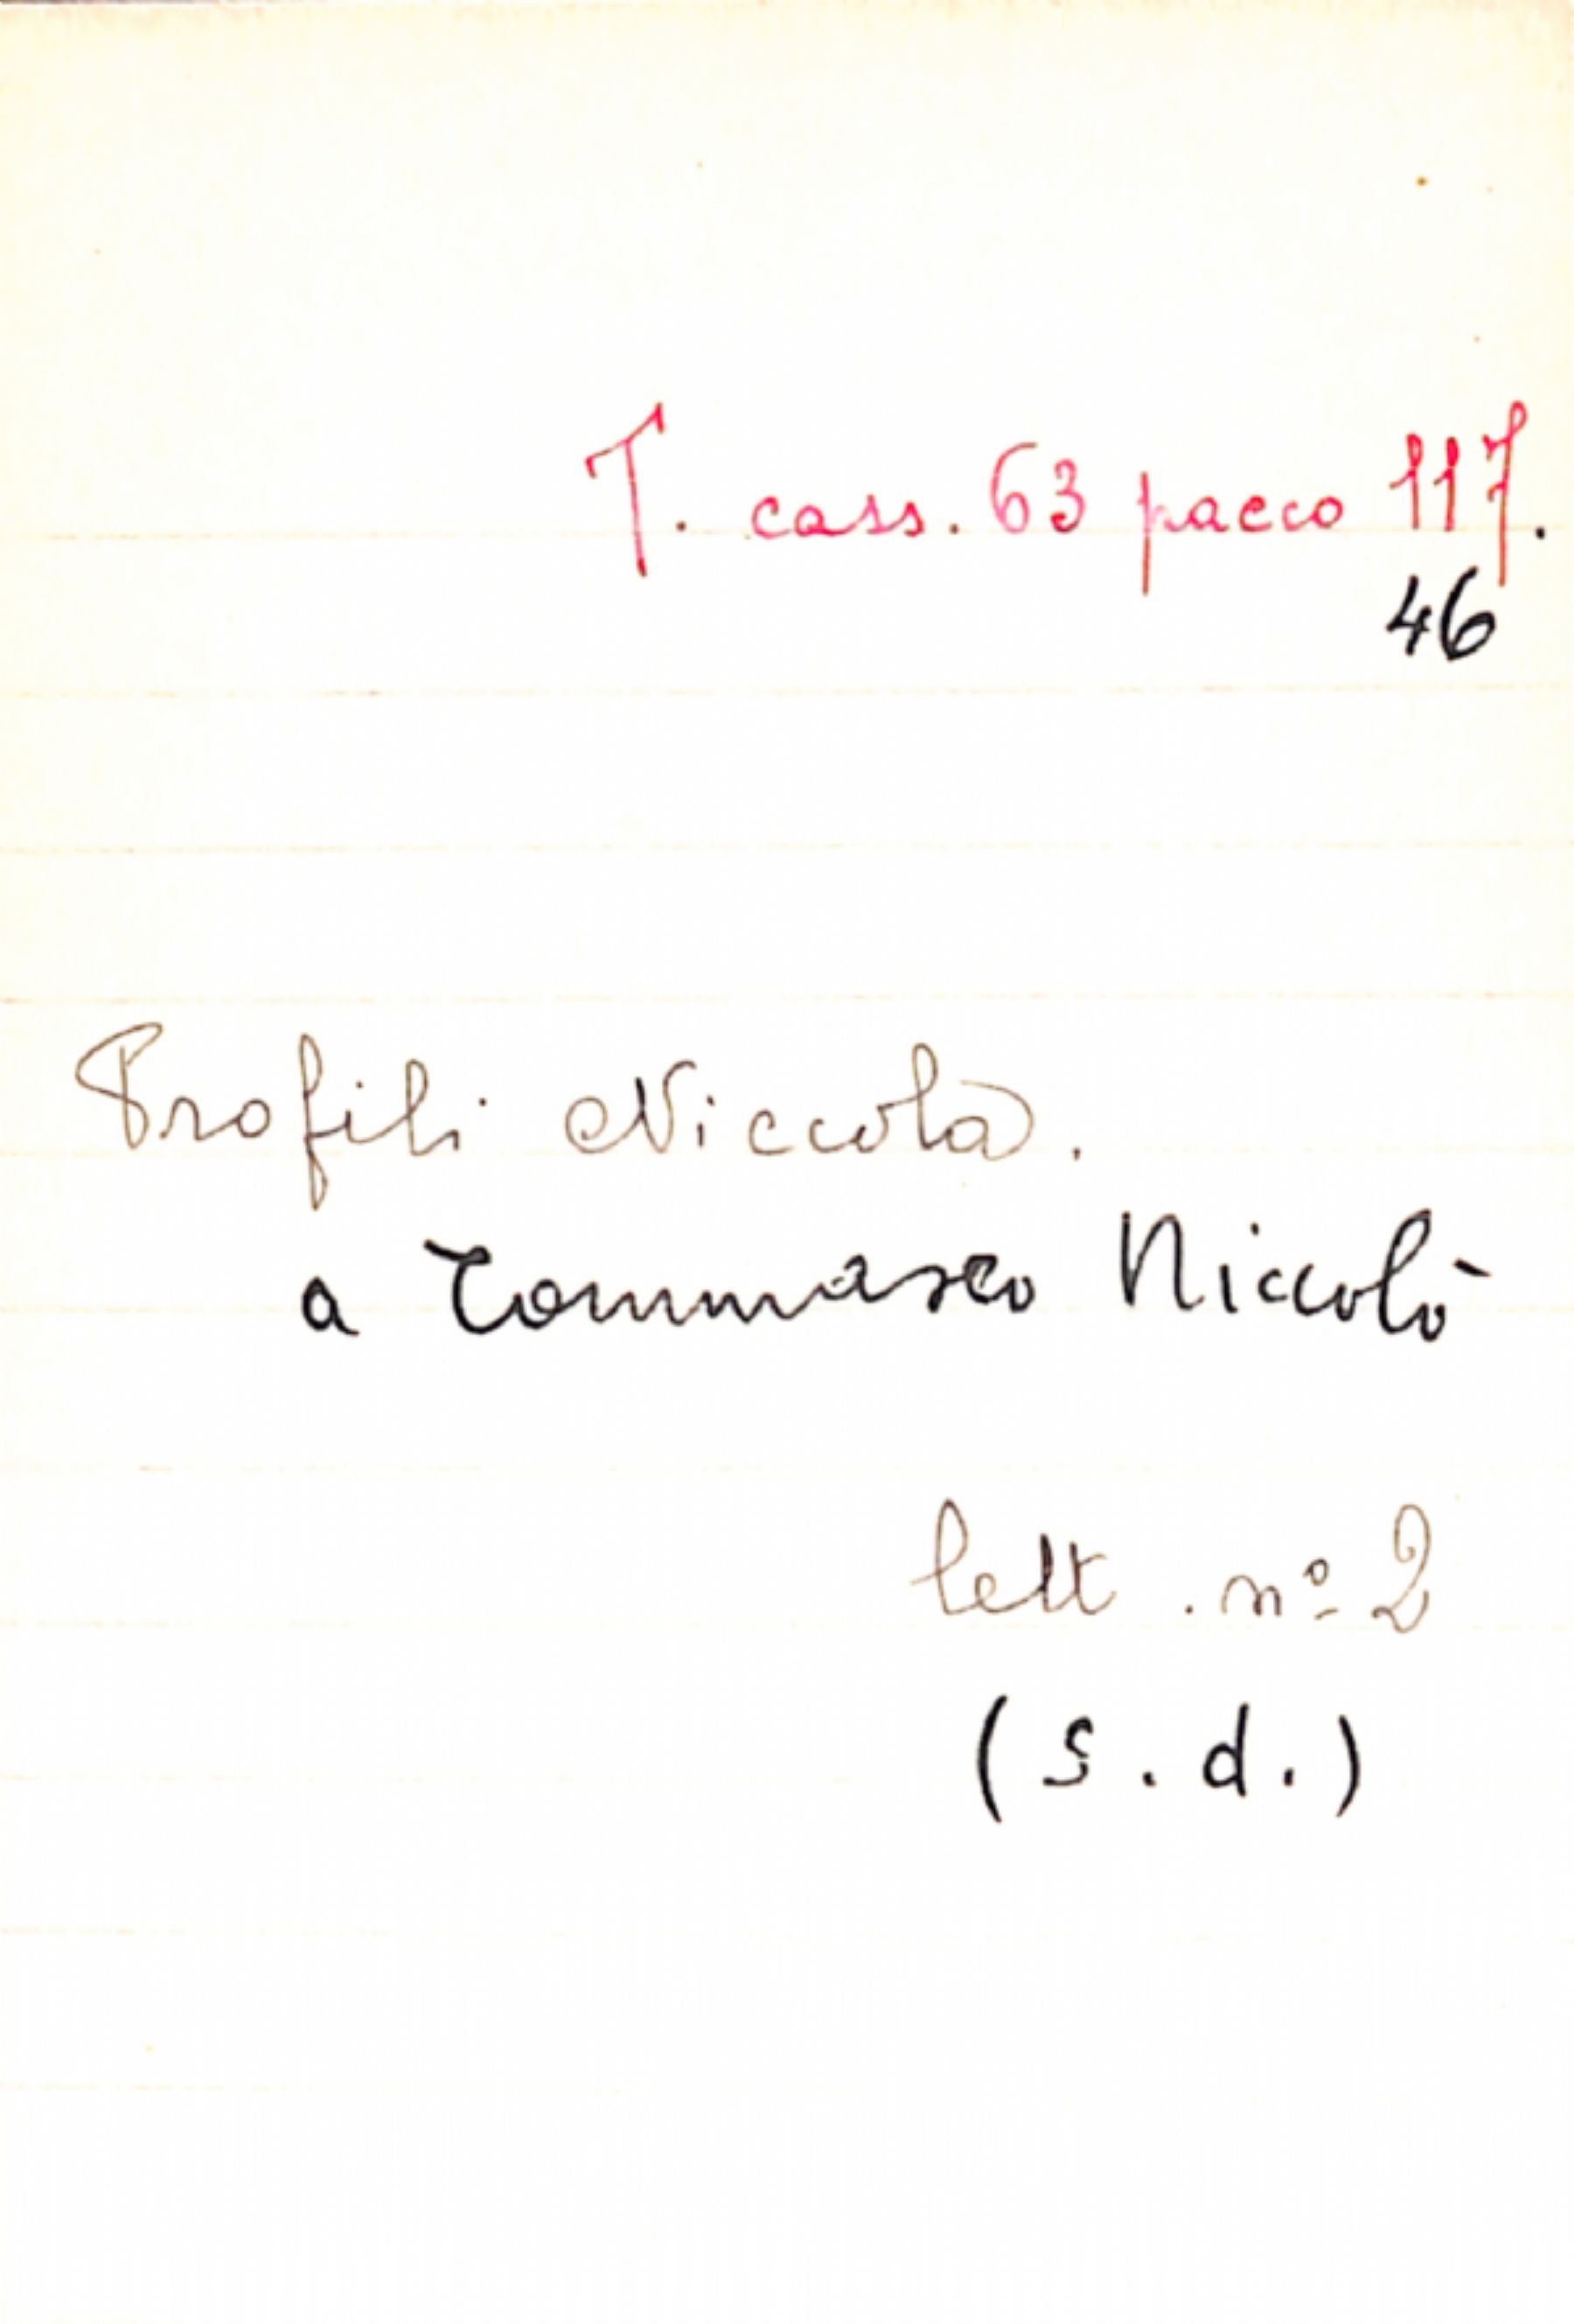 T. cass. 63 pacco 117.
46
Profili Niccola.
a Tommaseo Niccolò
lett. nº 2
(s.d.)